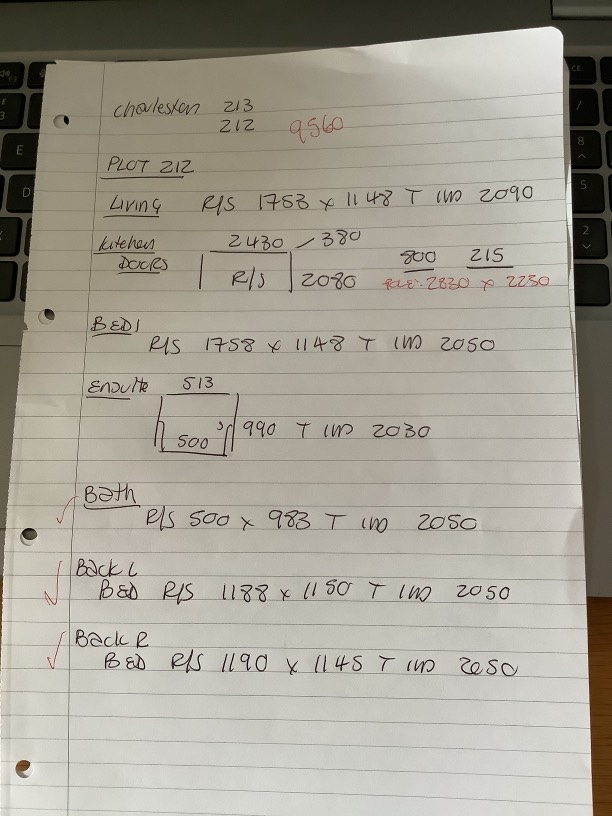 Charleston 213
212 9560
PLOT 212
LIVING R/S 1753 x 1148 T IW 2090
Kitchen 2430 380
DOORS R/S 2080 800 215
2830 x 2250
BED 1
R/S 1758 x 1148 T IW 2050
Ensuite 513
500 990 T IW 2030
Bath
R/S 500 x 983 T IW 2050
Back L
BED R/S 1188 x 1150 T IW 2050
Back R
BED R/S 1190 x 1145 T IW 2050